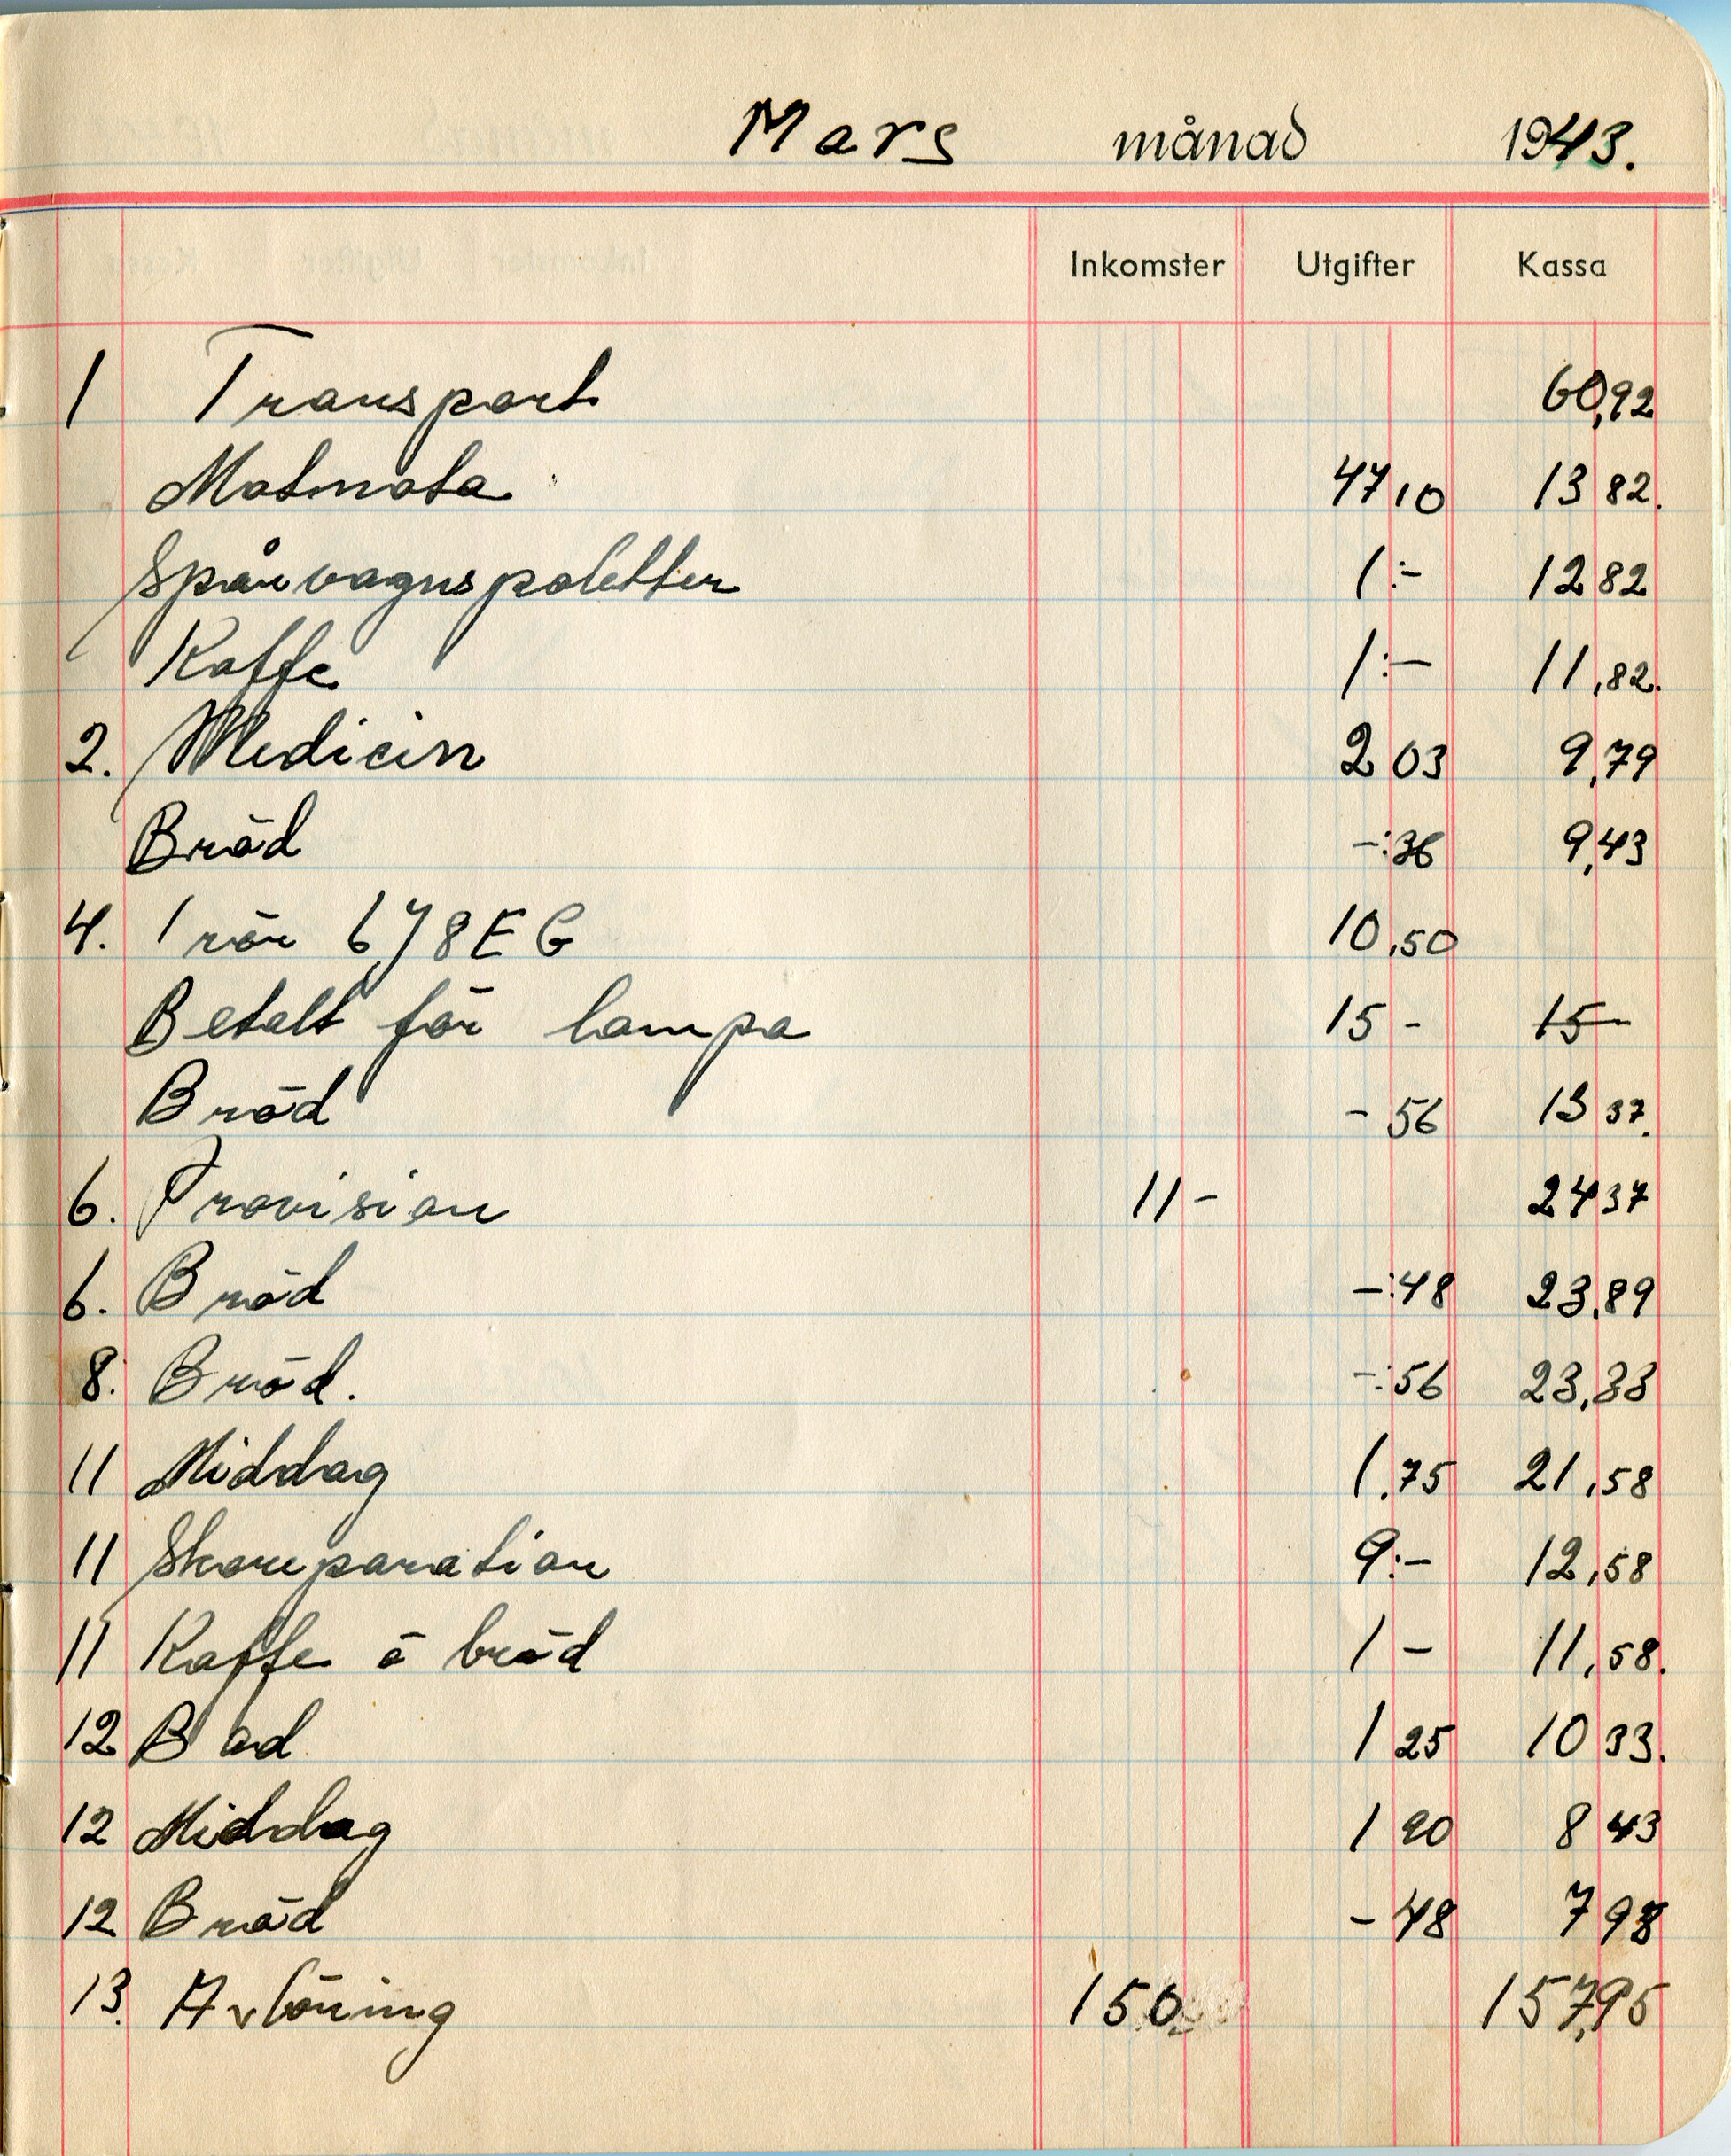 Mars månad 1943.
Inkomster Utgifter Kassa
1 Transport 60,92
Matmota 47,10 13 82.
Spårvagnspoletter 1:- 12 82
Kaffe 1:- 11,82.
2. Medicin 2 03 9,79
Bröd -:36 9,43
4. 1 rör 6J8EG 10,50
Betalt för lampa 15 - 15-
Bröd - 56 13 37.
6. Provision 11 - 24 37
6. Bröd -:48 23,89
8. Bröd. -:56 23,33
11 Middag 1,75 21,58
11 Skoreparation 9:- 12,58
11 Kaffe o bröd 1 - 11,58.
12 Bad 1 25 10 33.
12 Middag 1 90 8 43
12 Bröd - 48 7 98
13. Avlöning 150 157,95